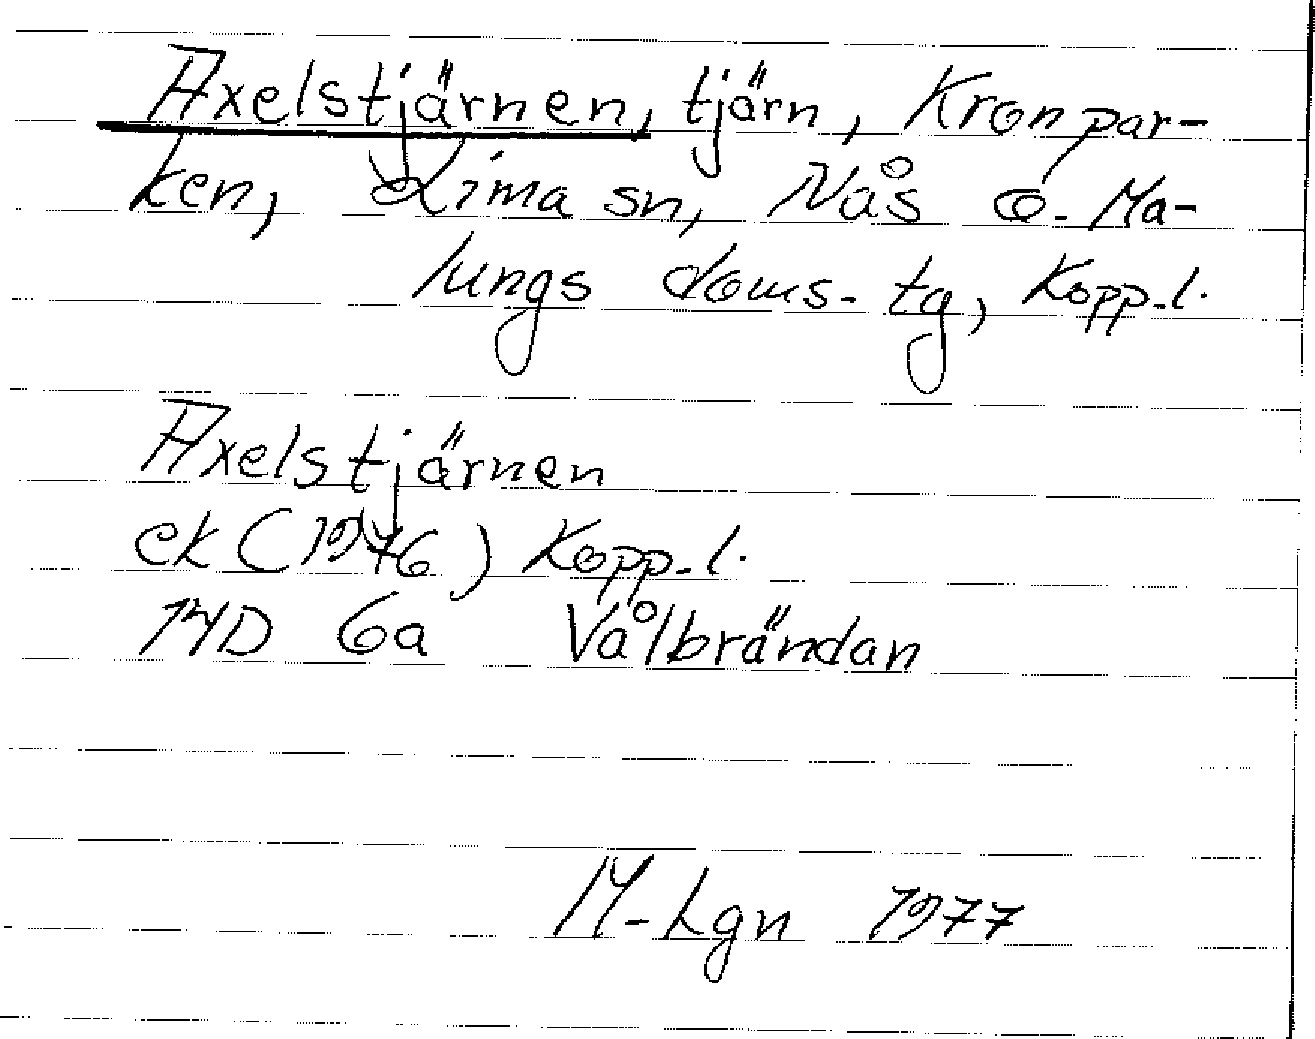 Axelstjärnen, tjärn, Kronpar-
ken, Lima sn, Nås o. Ma-
lungs doms. tg, Kopp.l.
Axelstjärnen
ek (1976) Kopp.l.
14D 6a Vålbrändan
M-Lgn 1977